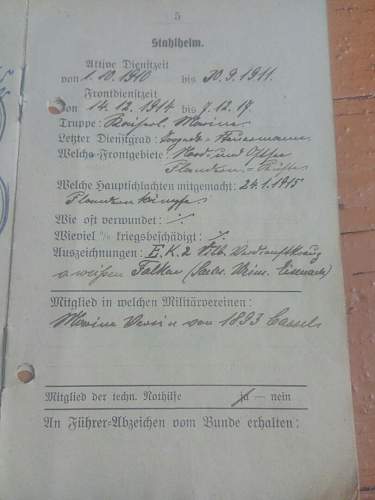 5
Stahlhelm.
Aktive Dienstzeit
von 1.10.1910 bis 30.9.1911.
Frontdienstzeit
von 14.12.1914 bis 7.12.17.
Truppe: Kaiserl. Marine
Letzter Dienstgrad:
Welche Frontgebiete: Nord- und Ostsee
Flandern-Küste
Welche Hauptschlachten mitgemacht: 24.1.1915
Flandernkämpfe
Wie oft verwundet: ./.
Wieviel % kriegsbeschädigt: ./.
Auszeichnungen: E.K.2 Verdienstkreuz
Falken (Sachs. Weim. Eisenach)
Mitglied in welchen Militärvereinen:
Marine Verein von 1893 Cassel
Mitglied der techn. Nothilfe ja — nein
An Führer-Abzeichen vom Bunde erhalten: